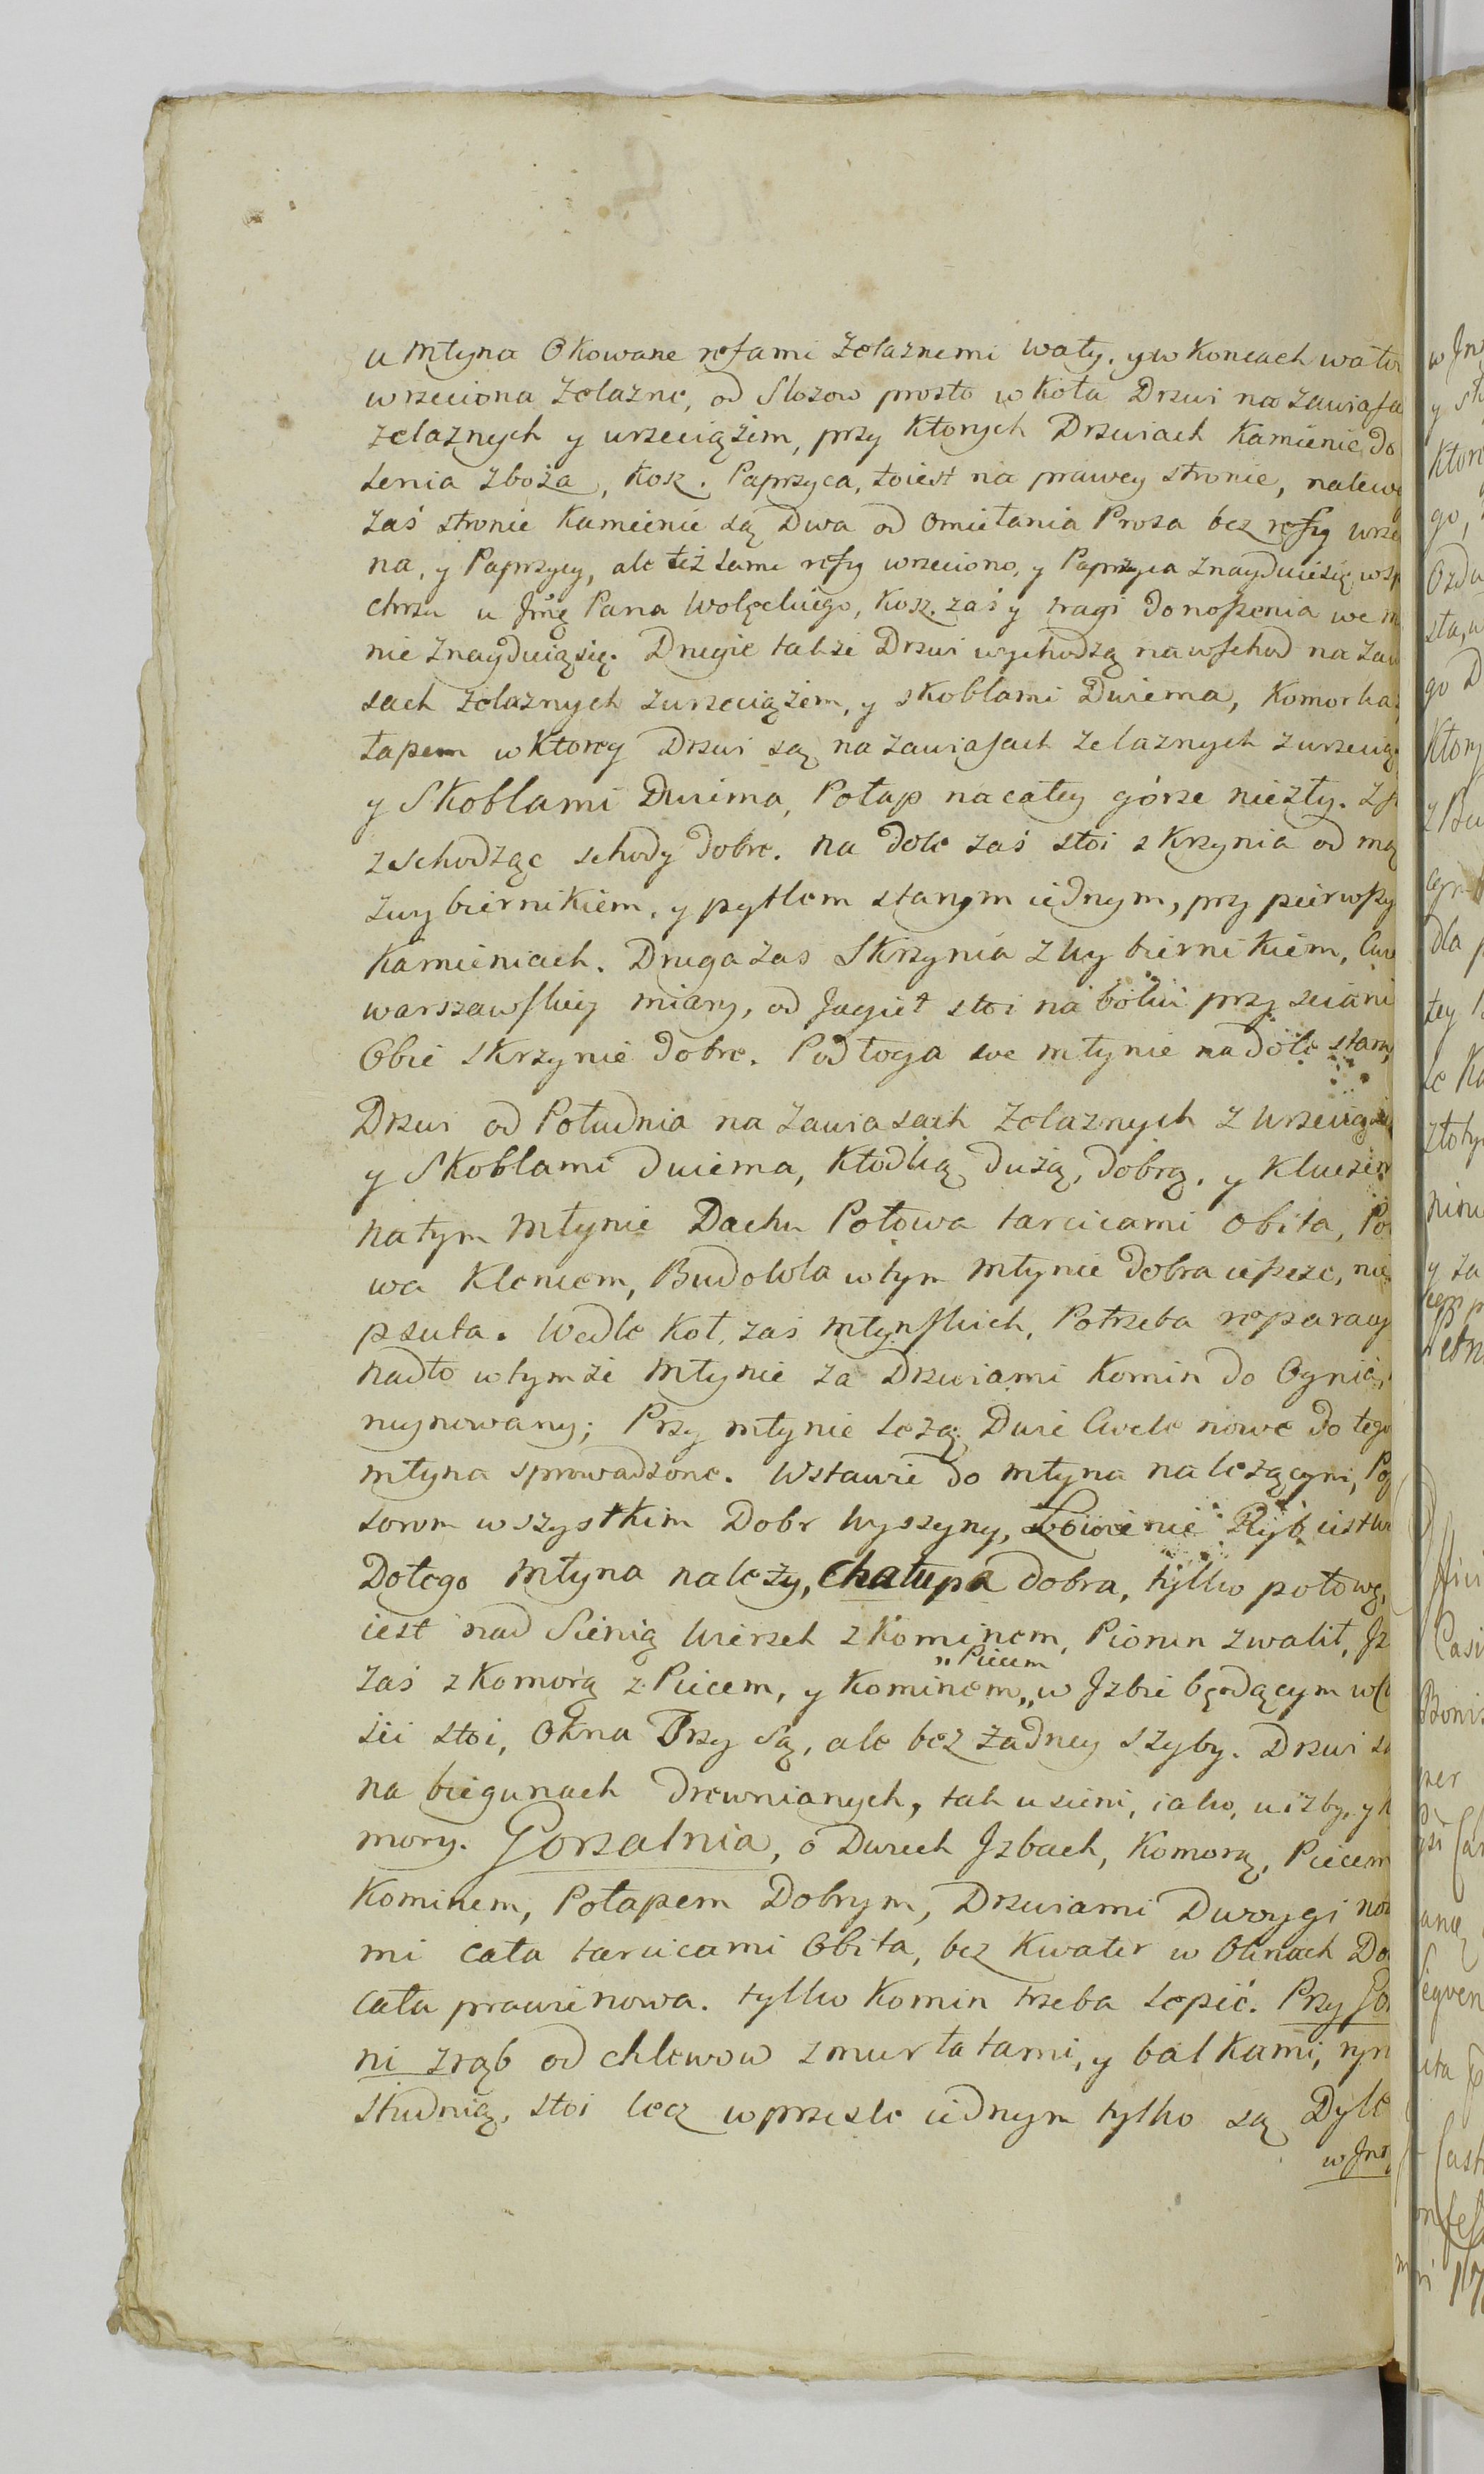 u Młyna Okowane refami Zelaznemi wały, y w Koncach wało
wrzeciona Zelazne, od Slozow prosto w Koła Drzwi na zawiasa
zelaznych y wrzeciążem, przy Ktorych Drzwiach Kamienie do
lenia zboża, Kosz. Paprzyca, to iest na prawey stronie, na lewe
zaś stronie Kamienie są Dwa od omietania Prosa bez refy wrze
na, y Paprzycy, ale też same refy wrzeciono, y Paprzyca znayduie się w sp
chrzu u Jmę Pana Wolęckiego, Kosz zaś y tragi do noszenia we m
nie znayduią się. Drugie także Drzwi wychodzą na wschod na Zaw
sach zelaznych z wrzeciążem, y skoblami Dwiema, Komorka z
łapem w Ktorey Drzwi są na zawiasach zelaznych z wrzeciąż
y Skoblami Dwima, Połap na całey górze niezły.
zschodząc schody dobre. na dole zaś stoi skrzynia od mą
z wybiernikiem, y pytlem starym iednym, przy pierwszy
Kamieniach. Druga zas Skrzynia z Wybiernikiem,
warszawskiey miary, od Jagieł stoi na boku przy scianie
Obie skrzynie dobre. Podłoga we młynie na dole stara,
Drzwi od Południa na Zawiasach Zelaznych z wrzeciąże
y Skoblami dwiema, Kłodką dużą, dobrą, y Kluczem
na tym Młynie Dachu Połowa tarcicami obita, Po
wa Kleniem, Budowla w tym Młynie dobra ieszcze, nie
psuta. Wedle Koł zaś młynskich, Potrzeba reparacy
nadto w tymże Młynie za Drzwiami Komin do Ognia,
rujnowany; Przy młynie leżą Dwie Cwele nowe do tego
młyna sprowadzone. W stawie do młyna należącym, Po
sorom wszystkim Dobr Wyszyny, Łowienie Ryb iest w
Do tego Młyna należy, Chałupa dobra, tylko połowę,
iest nad Sienią Wierzch z Kominem, Piorun zwalił, Jz
zaś z Komorą z Piecem, y Kominem „ w Jzbie będącym w
„ Piecem
sci stoi, Okna Trzy Są, ale bez żadney szyby. Drzwi są
na biegunach drewnianych, tak u sieni, iako, u izby, y K
mory. Gorzalnia, o Dwuch Jzbach, Komorą, Piecem
Kominem, Połapem Dobrym, Drzwiami Dwoygi now
mi cała tarcicami Obita, bez Kwater w Oknach Do
cała prawie nowa. tylko Komin trzeba lepić. Przy Go
ni zrąb od chlewow z murłatami, y balkami, ryn
studnią, stoi lecz w przesle iednym tylko są Dyle
w Jn